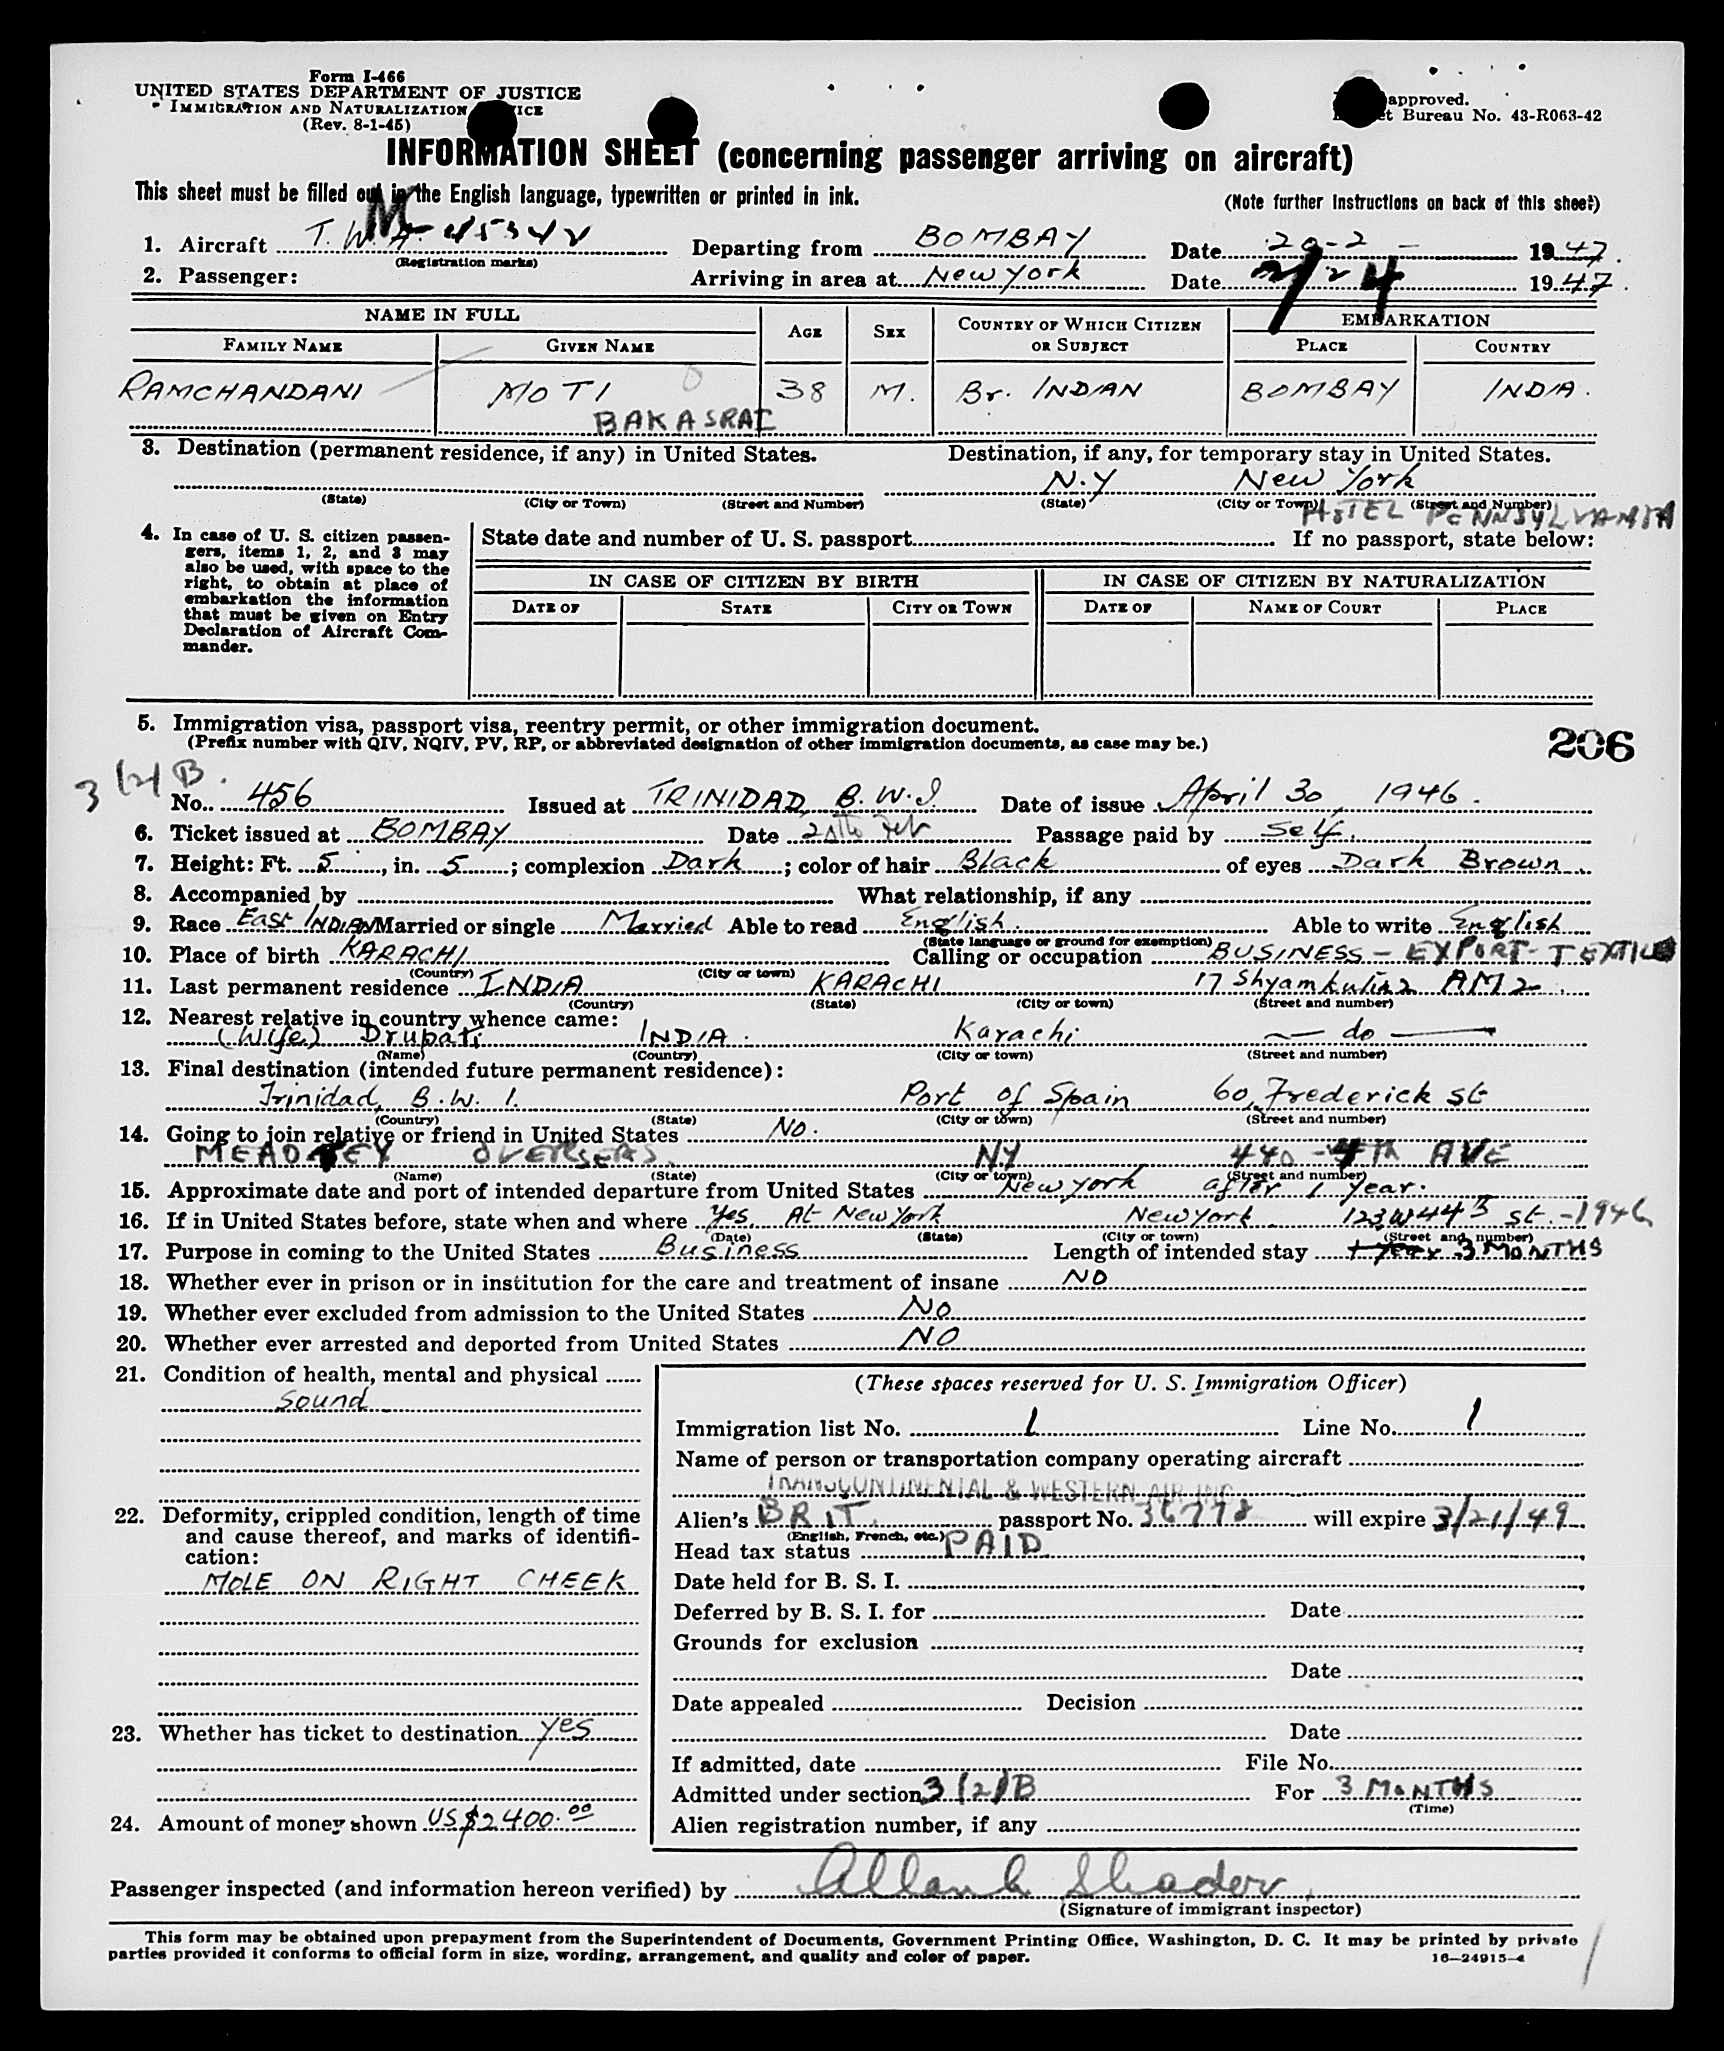 Form I-466
UNITED STATES DEPARTMENT OF JUSTICE
IMMIGRATION AND NATURALIZATION
(Rev. 8-1-45)
approved.
Bureau No. 43-R063-42
INFORMATION SHEET (concerning passenger arriving on aircraft)
This sheet must be filled out in the English language, typewritten or printed in ink.
(Note further instructions on back of this sheet)
1. Aircraft T.W.A. Departing from BOMBAY Date 20-2- 1947.
(Registration marks)
2. Passenger: Arriving in area at New York Date 1947.
NAME IN FULL AGE SEX COUNTRY OF WHICH CITIZEN OR SUBJECT EMBARKATION
FAMILY NAME GIVEN NAME PLACE COUNTRY
RAMCHANDANI MOTI 38 M. Br. INDIAN BOMBAY INDIA.
BAKASRAI
3. Destination (permanent residence, if any) in United States. Destination, if any, for temporary stay in United States.
N.Y New York
(State) (City or Town) (Street and Number) (State) (City or Town) (Street and Number)
HOTEL PENNSYLVANIA
4. In case of U. S. citizen passengers, items 1, 2, and 3 may also be used, with space to the right, to obtain at place of embarkation the information that must be given on Entry Declaration of Aircraft Commander.
State date and number of U. S. passport If no passport, state below:
IN CASE OF CITIZEN BY BIRTH IN CASE OF CITIZEN BY NATURALIZATION
DATE OF STATE CITY OR TOWN DATE OF NAME OF COURT PLACE
5. Immigration visa, passport visa, reentry permit, or other immigration document.
(Prefix number with QIV, NQIV, PV, RP, or abbreviated designation of other immigration documents, as case may be.)
206
3(2)B.
No. 456 Issued at TRINIDAD, B.W.I. Date of issue April 30, 1946.
6. Ticket issued at BOMBAY Date Feb Passage paid by Self.
7. Height: Ft. 5, in. 5; complexion Dark; color of hair Black of eyes Dark Brown.
8. Accompanied by What relationship, if any
9. Race East INDIAN Married or single Married Able to read English. Able to write English
(State language or ground for exemption)
10. Place of birth KARACHI Calling or occupation BUSINESS - EXPORT-TEXTILE
(Country) (City or town)
11. Last permanent residence INDIA KARACHI 17 AM 2.
(Country) (State) (City or town) (Street and number)
12. Nearest relative in country whence came:
(Wife) Drupati INDIA. Karachi — do —
(Name) (Country) (City or town) (Street and number)
13. Final destination (intended future permanent residence):
Trinidad, B.W.I. Port of Spain 60, Frederick St
(Country) (State) (City or town) (Street and number)
14. Going to join relative or friend in United States No.
OVERSEAS. NY 440 - 4TH AVE
(Name) (State) (City or town) (Street and number)
15. Approximate date and port of intended departure from United States New York after 1 year.
16. If in United States before, state when and where Yes. At New York New York 123 W 44 St. - 1946
(Date) (State) (City or town) (Street and number)
17. Purpose in coming to the United States Business Length of intended stay 1 year 3 MONTHS
18. Whether ever in prison or in institution for the care and treatment of insane NO
19. Whether ever excluded from admission to the United States NO
20. Whether ever arrested and deported from United States NO
21. Condition of health, mental and physical
Sound
22. Deformity, crippled condition, length of time and cause thereof, and marks of identification:
MOLE ON RIGHT CHEEK
23. Whether has ticket to destination Yes
24. Amount of money shown US $2400.00
(These spaces reserved for U. S. Immigration Officer)
Immigration list No. 1 Line No. 1
Name of person or transportation company operating aircraft
TRANSCONTINENTAL & WESTERN AIR INC
Alien's BRIT. passport No. 36778 will expire 3/21/49
(English, French, etc.)
Head tax status PAID
Date held for B. S. I.
Deferred by B. S. I. for Date
Grounds for exclusion
Date
Date appealed Decision
Date
If admitted, date File No.
Admitted under section 3(2)B For 3 MONTHS
(Time)
Alien registration number, if any
Passenger inspected (and information hereon verified) by
(Signature of immigrant inspector)
This form may be obtained upon prepayment from the Superintendent of Documents, Government Printing Office, Washington, D. C. It may be printed by private
parties provided it conforms to official form in size, wording, arrangement, and quality and color of paper.
16—24915-4